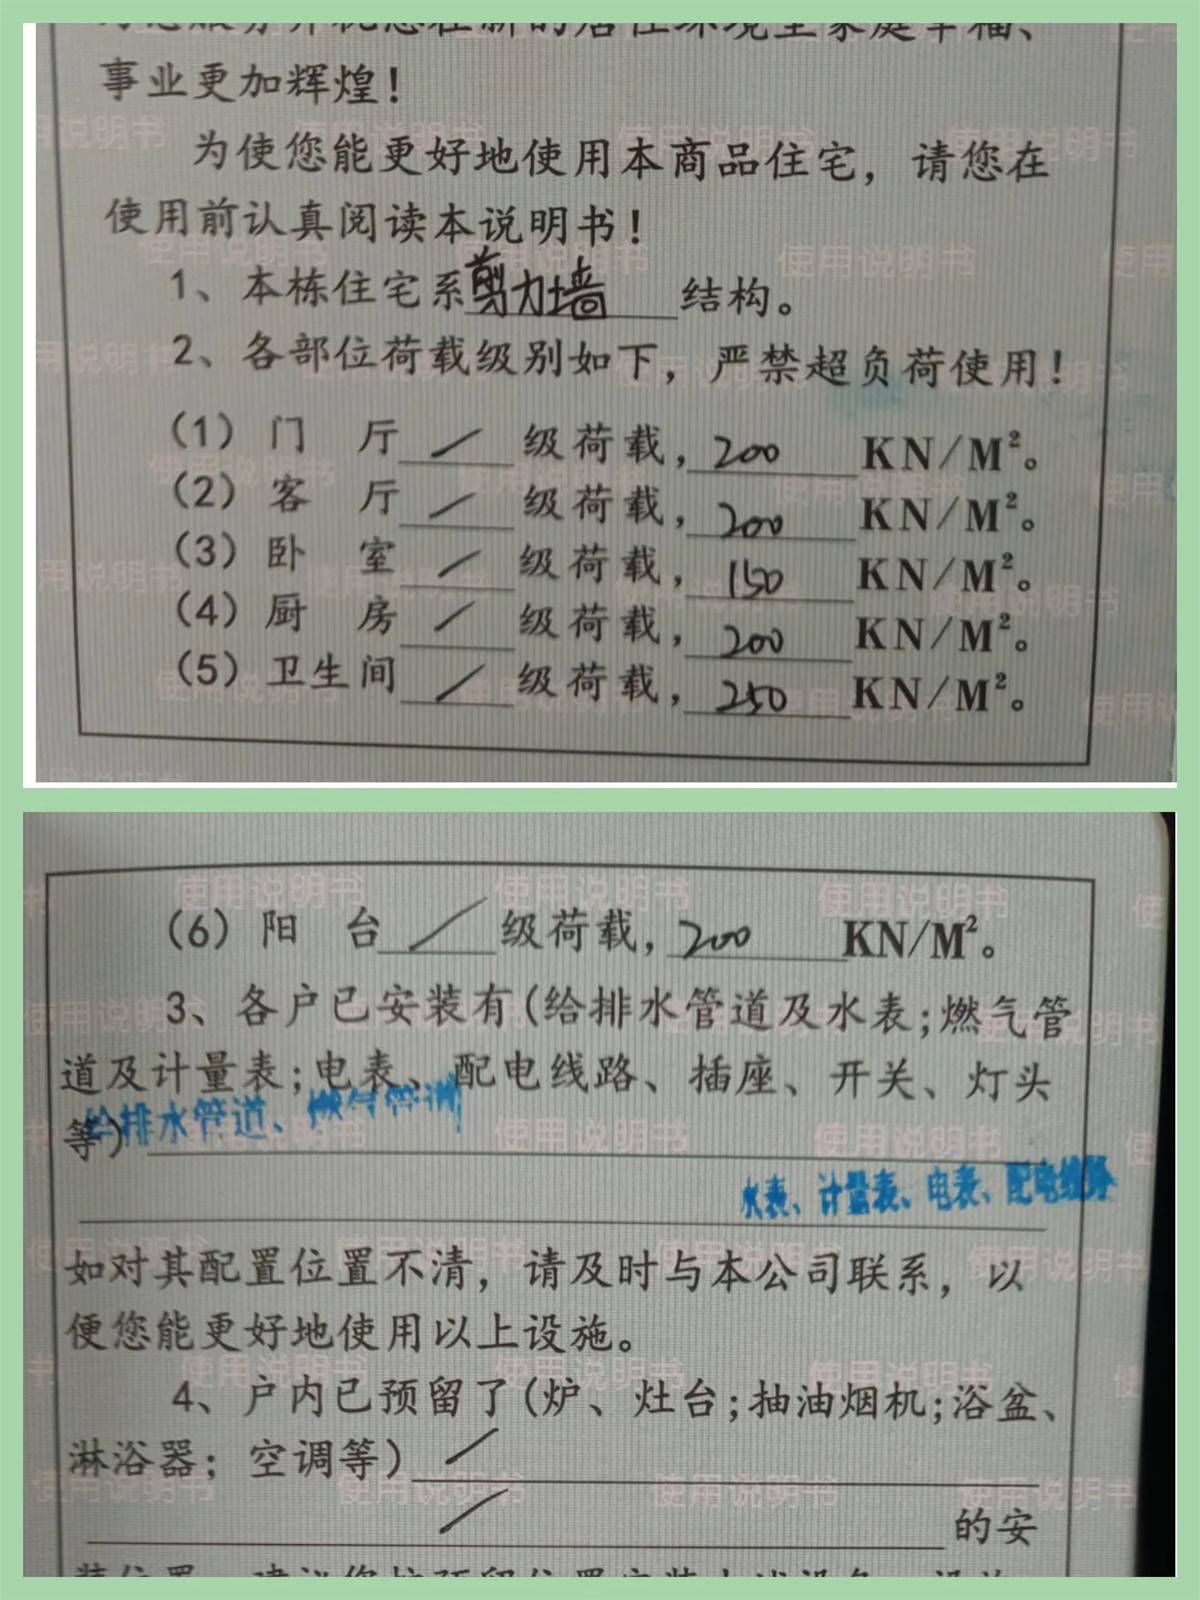 事业更加辉煌！
为使您能更好地使用本商品住宅，请您在
使用前认真阅读本说明书！
1、本栋住宅系剪力墙结构。
2、各部位荷载级别如下，严禁超负荷使用！
（1）门 厅 / 级荷载，200 KN/M²。
（2）客 厅 / 级荷载，200 KN/M²。
（3）卧 室 / 级荷载，150 KN/M²。
（4）厨 房 / 级荷载，200 KN/M²。
（5）卫生间 / 级荷载，250 KN/M²。
（6）阳 台 / 级荷载，200 KN/M²。
3、各户已安装有(给排水管道及水表;燃气管
道及计量表;电表、配电线路、插座、开关、灯头
等)给排水管道、燃气管道
水表、计量表、电表、配电线路
如对其配置位置不清，请及时与本公司联系，以
便您能更好地使用以上设施。
4、户内已预留了(炉、灶台;抽油烟机;浴盆、
淋浴器；空调等) /
/ 的安